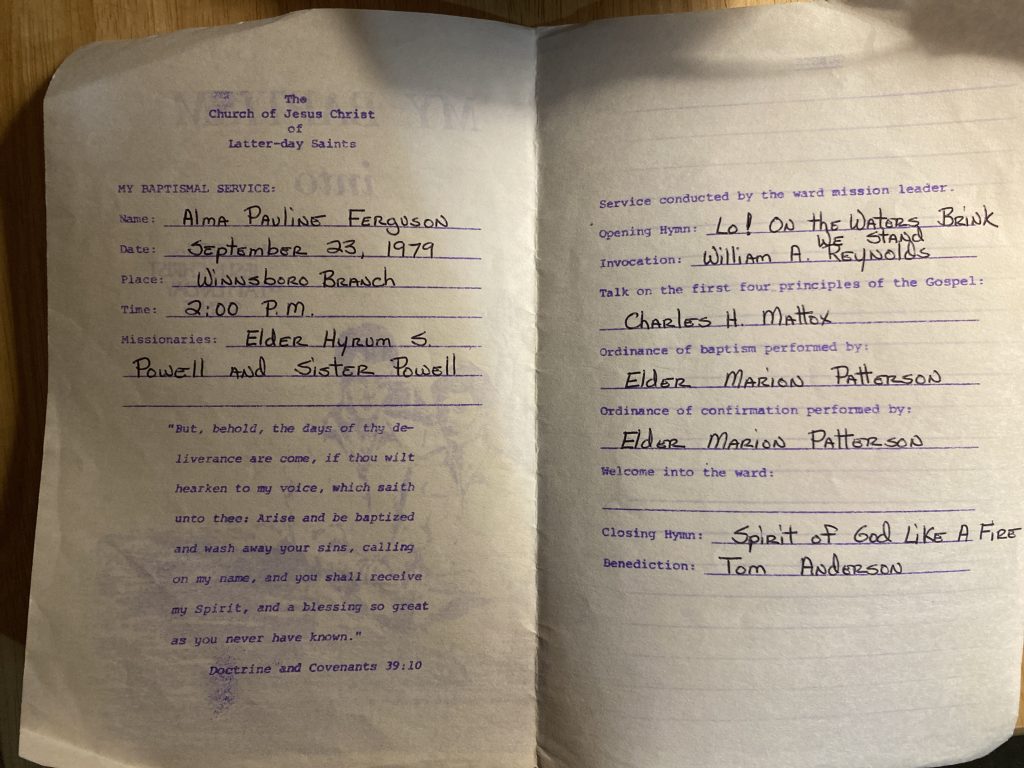 The
Church of Jesus Christ
of
Latter-day Saints
MY BAPTISMAL SERVICE:
Name: Alma Pauline Ferguson
Date: September 23, 1979
Place: Winnsboro Branch
Time: 2:00 P.M.
Missionaries: Elder Hyrum S.
Powell and Sister Powell
"But, behold, the days of thy de-
liverance are come, if thou wilt
hearken to my voice, which saith
unto thee: Arise and be baptized
and wash away your sins, calling
on my name, and you shall receive
my Spirit, and a blessing so great
as you never have known."
Doctrine and Covenants 39:10
Service conducted by the ward mission leader.
Opening Hymn: Lo! On the Waters Brink
We Stand
Invocation: William A. Reynolds
Talk on the first four principles of the Gospel:
Charles H. Mattox
Ordinance of baptism performed by:
Elder Marion Patterson
Ordinance of confirmation performed by:
Elder Marion Patterson
Welcome into the ward:
Closing Hymn: Spirit of God Like A Fire
Benediction: Tom Anderson